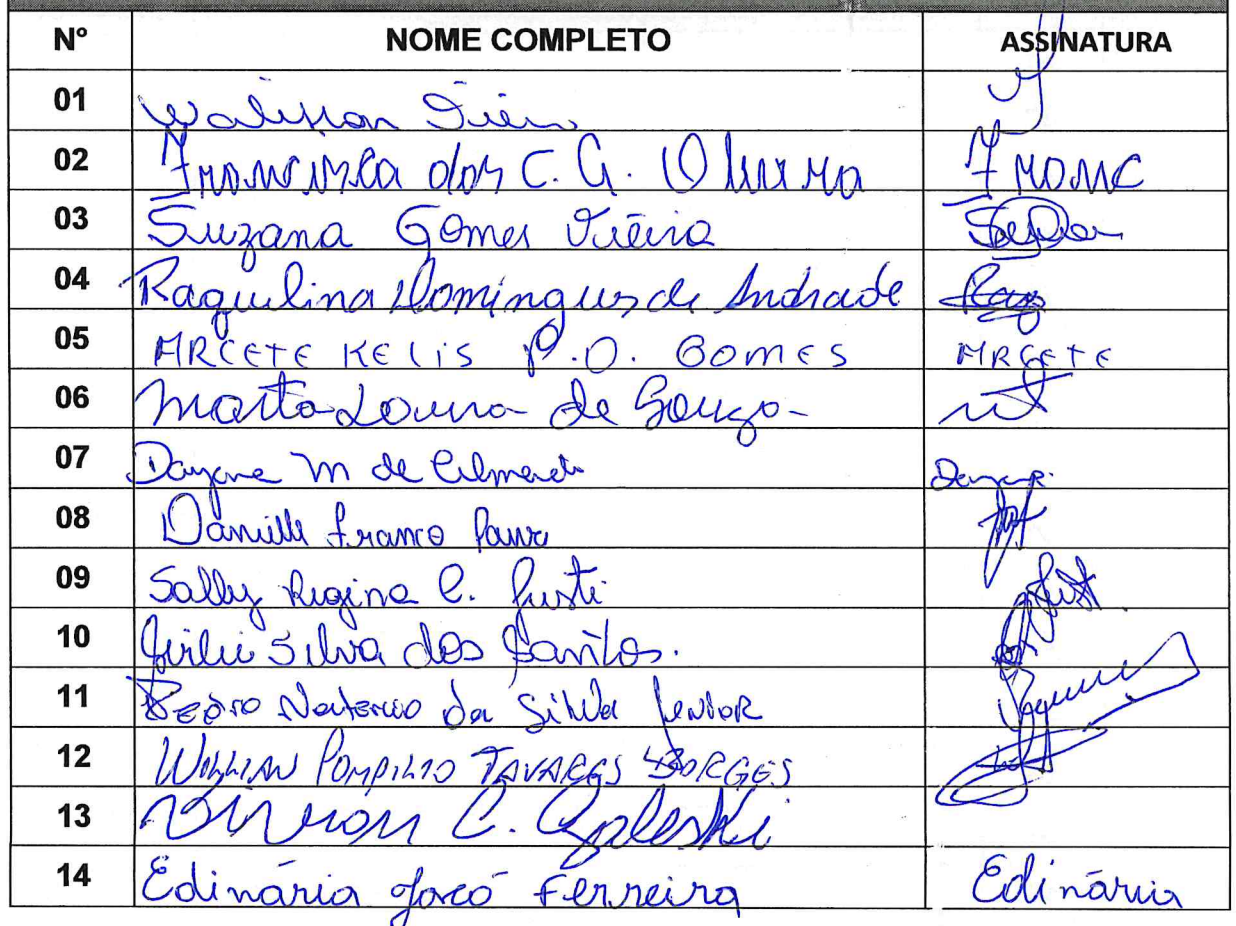 N° NOME COMPLETO ASSINATURA
01 Walisson
02 dos C. G. Franc
03 Suzana Gomes Vieira
04 Raquelina Domingues de Andrade Raq
05 ARCETE KELIS P.O. GOMES ARCETE
06 Marta de Souza
07 Dayane M de Almeida Dayane
08 Danielle Franco
09 Sally Regina C. Justi
10 Silva dos Santos.
11 Pedro da Silva Junior
12 WILLIAN POMPILIO TAVARES BORGES
13 C.
14 Edinária Jacó Ferreira Edinária